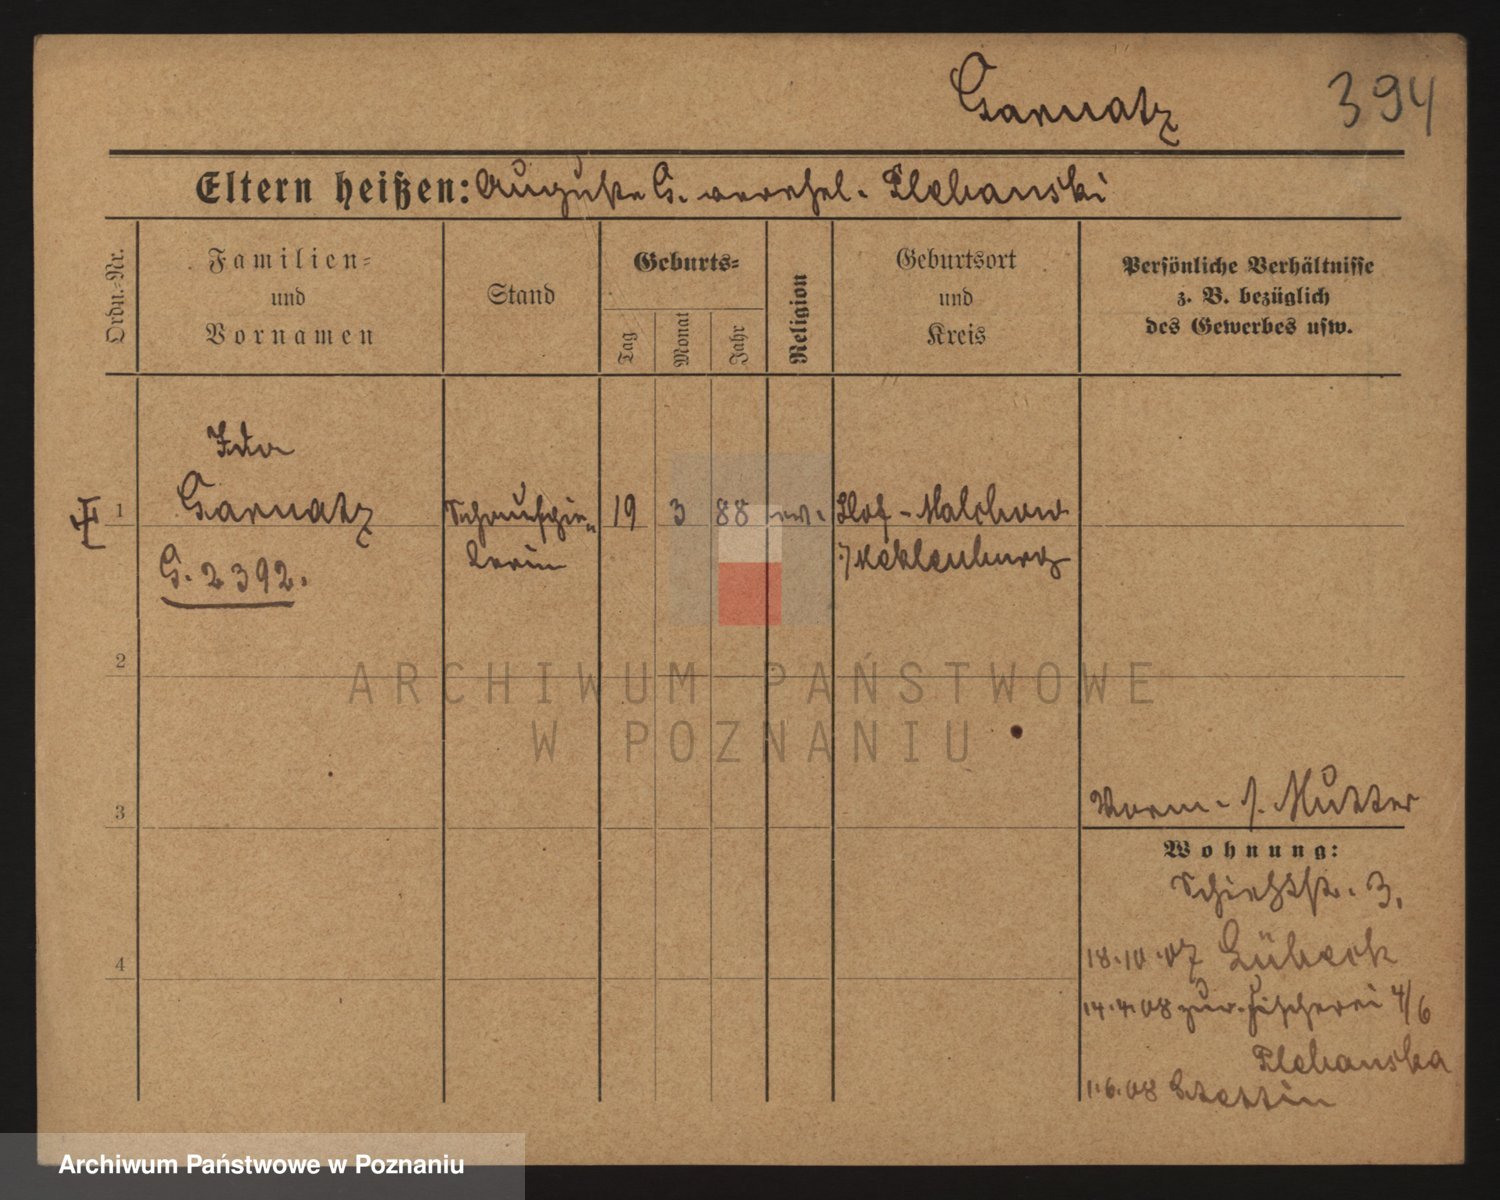 Garnatz 394
Eltern heißen: Auguste G. verehel. Plebanski
Ordn.-Nr.
Familien-
und
Vornamen
Stand
Geburts-
Tag
Monat
Jahr
Religion
Geburtsort
und
Kreis
Persönliche Verhältnisse
z. B. bezüglich
des Gewerbes usw.
Ida
1 Garnatz Schauspie- 19 3 88 ev. Hof-Malchow
G. 2392. lerin Meklenburg
2
ARCHIWUM PAŃSTWOWE
W POZNANIU
3
Vorm. s. Mutter
Wohnung:
Schießstr. 3.
4
18.10.07 Lübeck
14.4.08 zur. Fischerei 4/6
Plebanska
1.6.08 Stettin
Archiwum Państwowe w Poznaniu